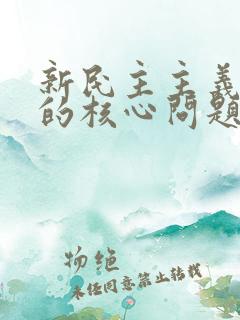 新民主主義
的核心問題
物绝
未经同意禁止转载